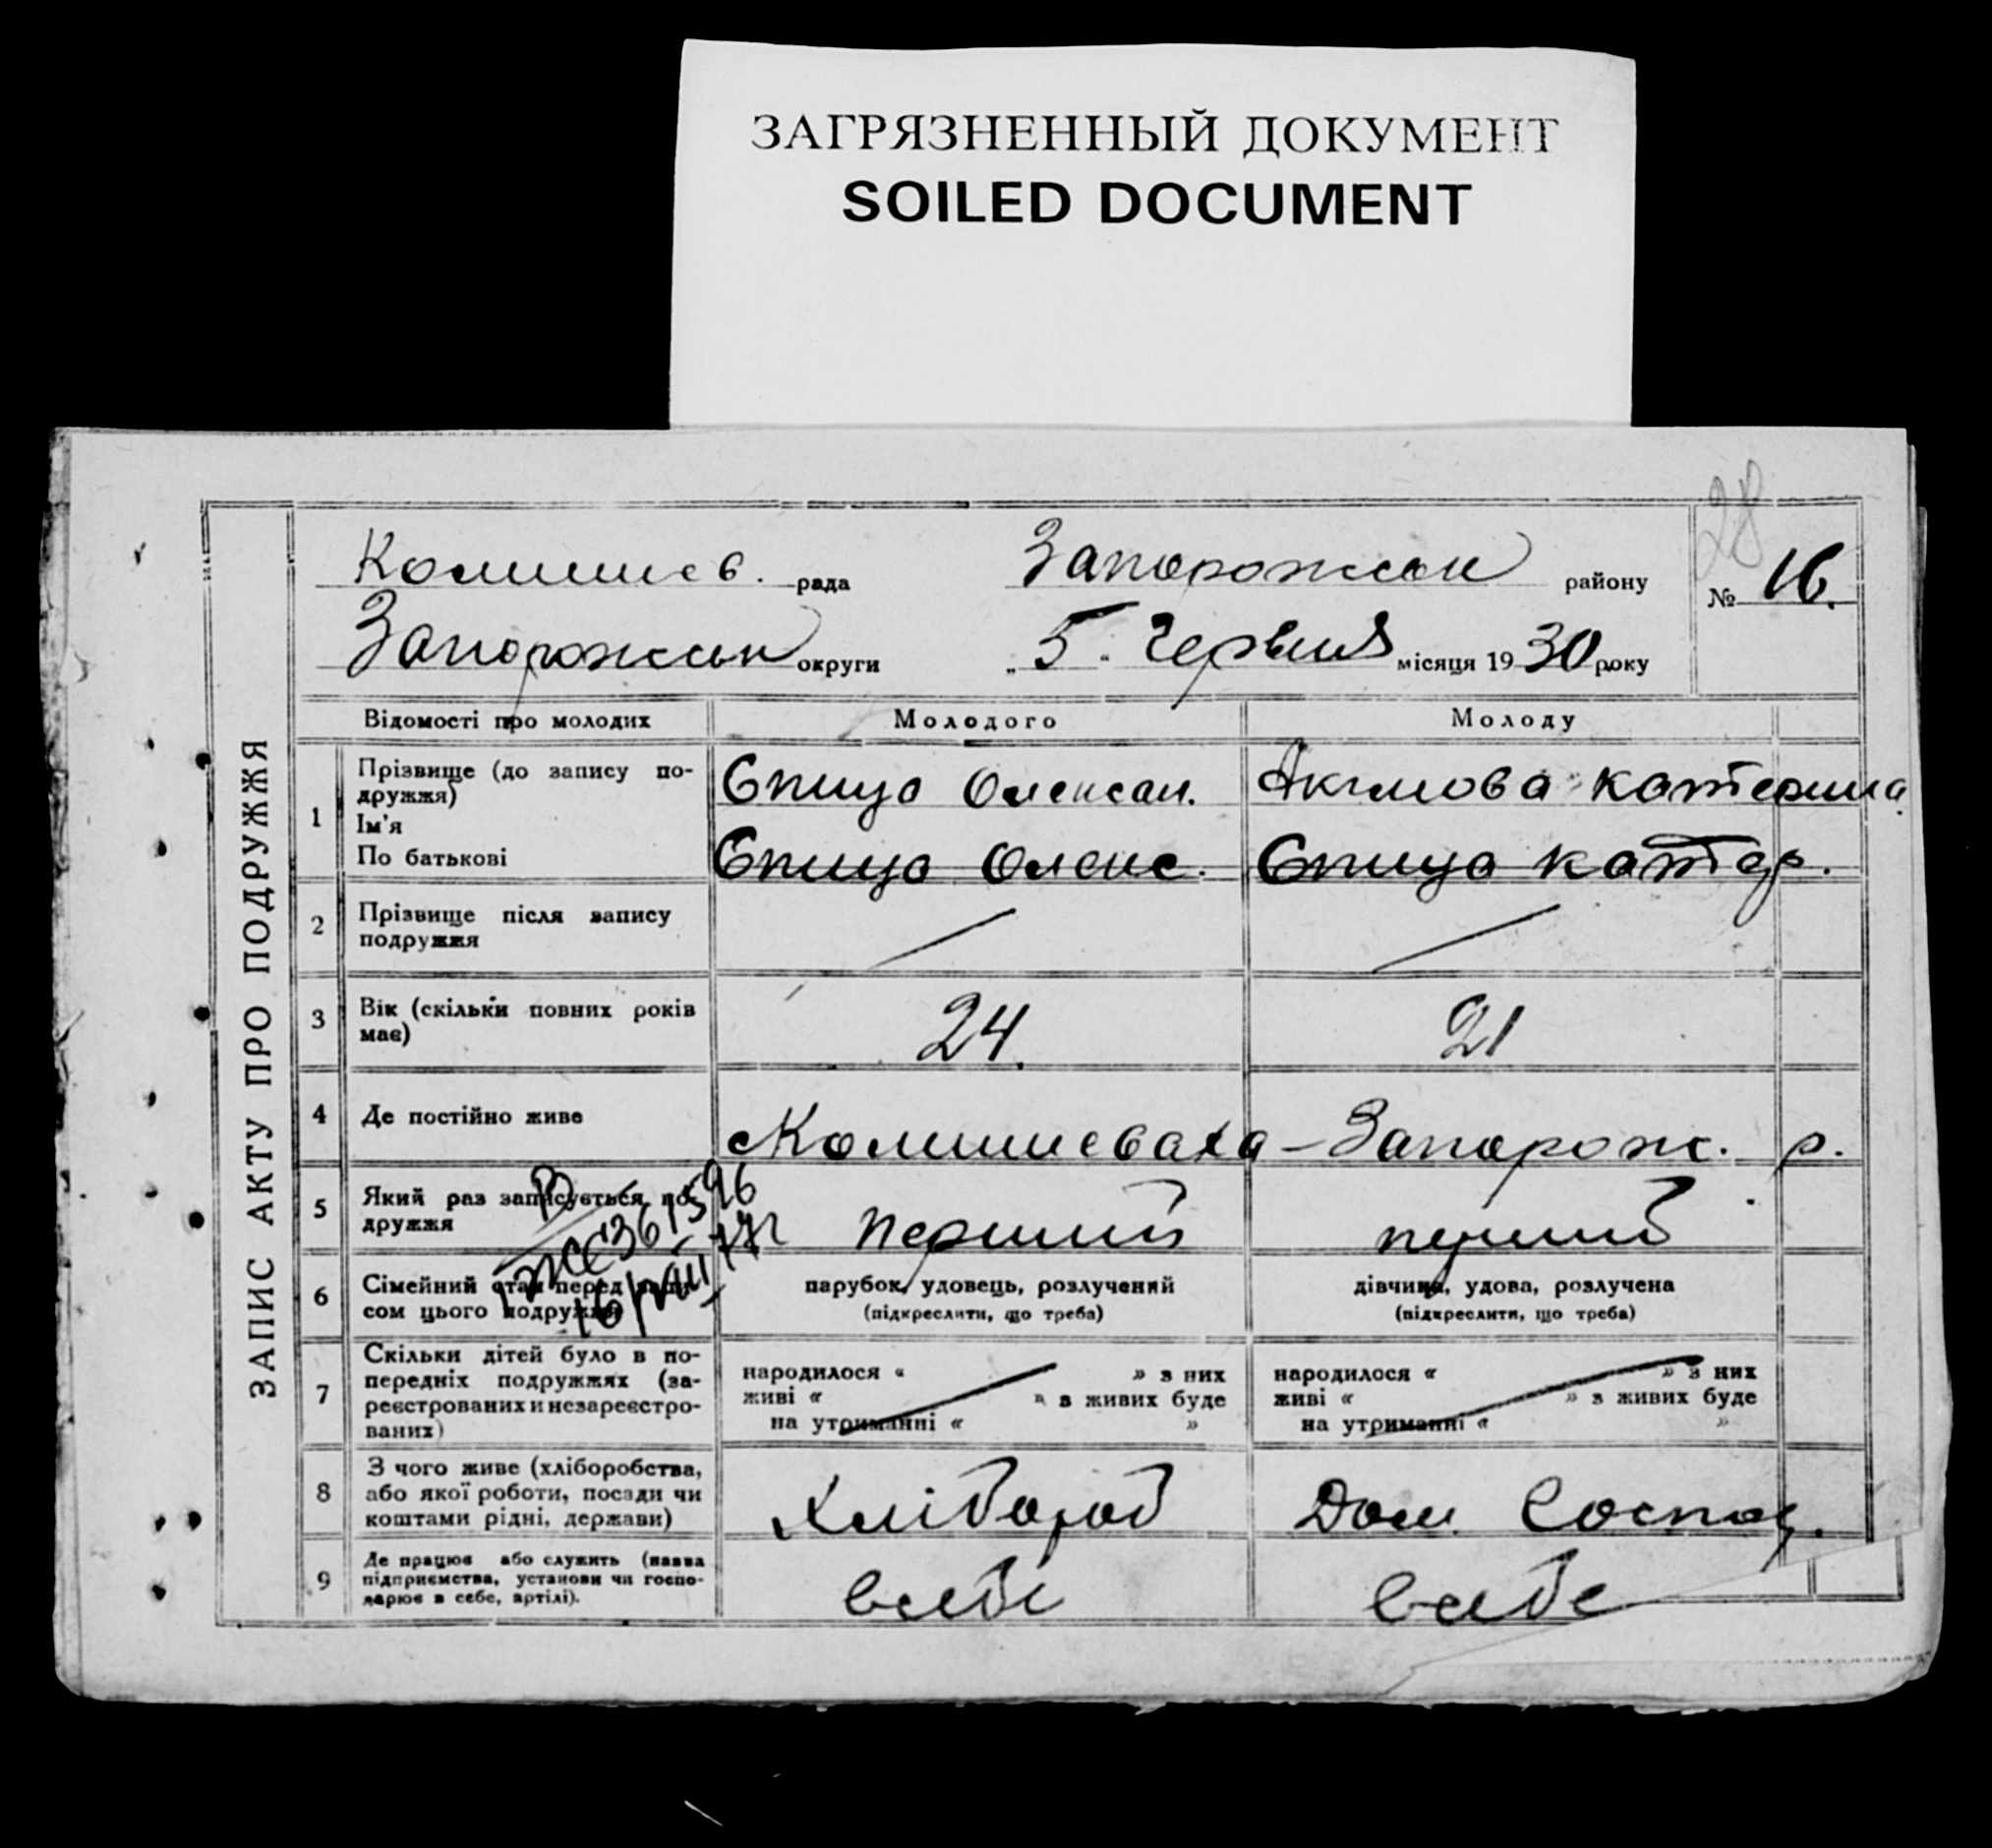 ЗАГРЯЗНЕННЫЙ ДОКУМЕНТ
SOILED DOCUMENT
28
Комишев. рада Запорожськ району № 16.
Запорожськ округи „5" Червня місяця 1930 року
ЗАПИС АКТУ ПРО ПОДРУЖЖЯ
Відомості про молодих Молодого Молоду
1 Прізвище (до запису по-
дружжя)
Ім'я
По батькові
Спица Олексан. Акімова Катерина
Спица Олекс. Спица Катер.
2 Прізвище після запису
подружжя
3 Вік (скільки повних років
має)
24. 21
4 Де постійно живе
Комишеваха – Запорож. р.
5 Який раз записується по-
дружжя
перший перший
6 Сімейний стан перед запи-
сом цього подружжя
парубок, удовець, розлучений дівчина, удова, розлучена
(підкреслити, що треба) (підкреслити, що треба)
7 Скільки дітей було в по-
передніх подружжях (за-
реєстрованих и незареєстро-
ваних)
народилося « » з них народилося « » з них
живі « » з живих буде живі « » з живих буде
на утриманні « » на утриманні « »
8 З чого живе (хліборобства,
або якої роботи, посади чи
коштами рідні, держави)
Хлібороб Дом. Господ.
9 Де працює або служить (назва
підприємства, установи чи госпо-
дарює в себе, артілі).
всебе всебе